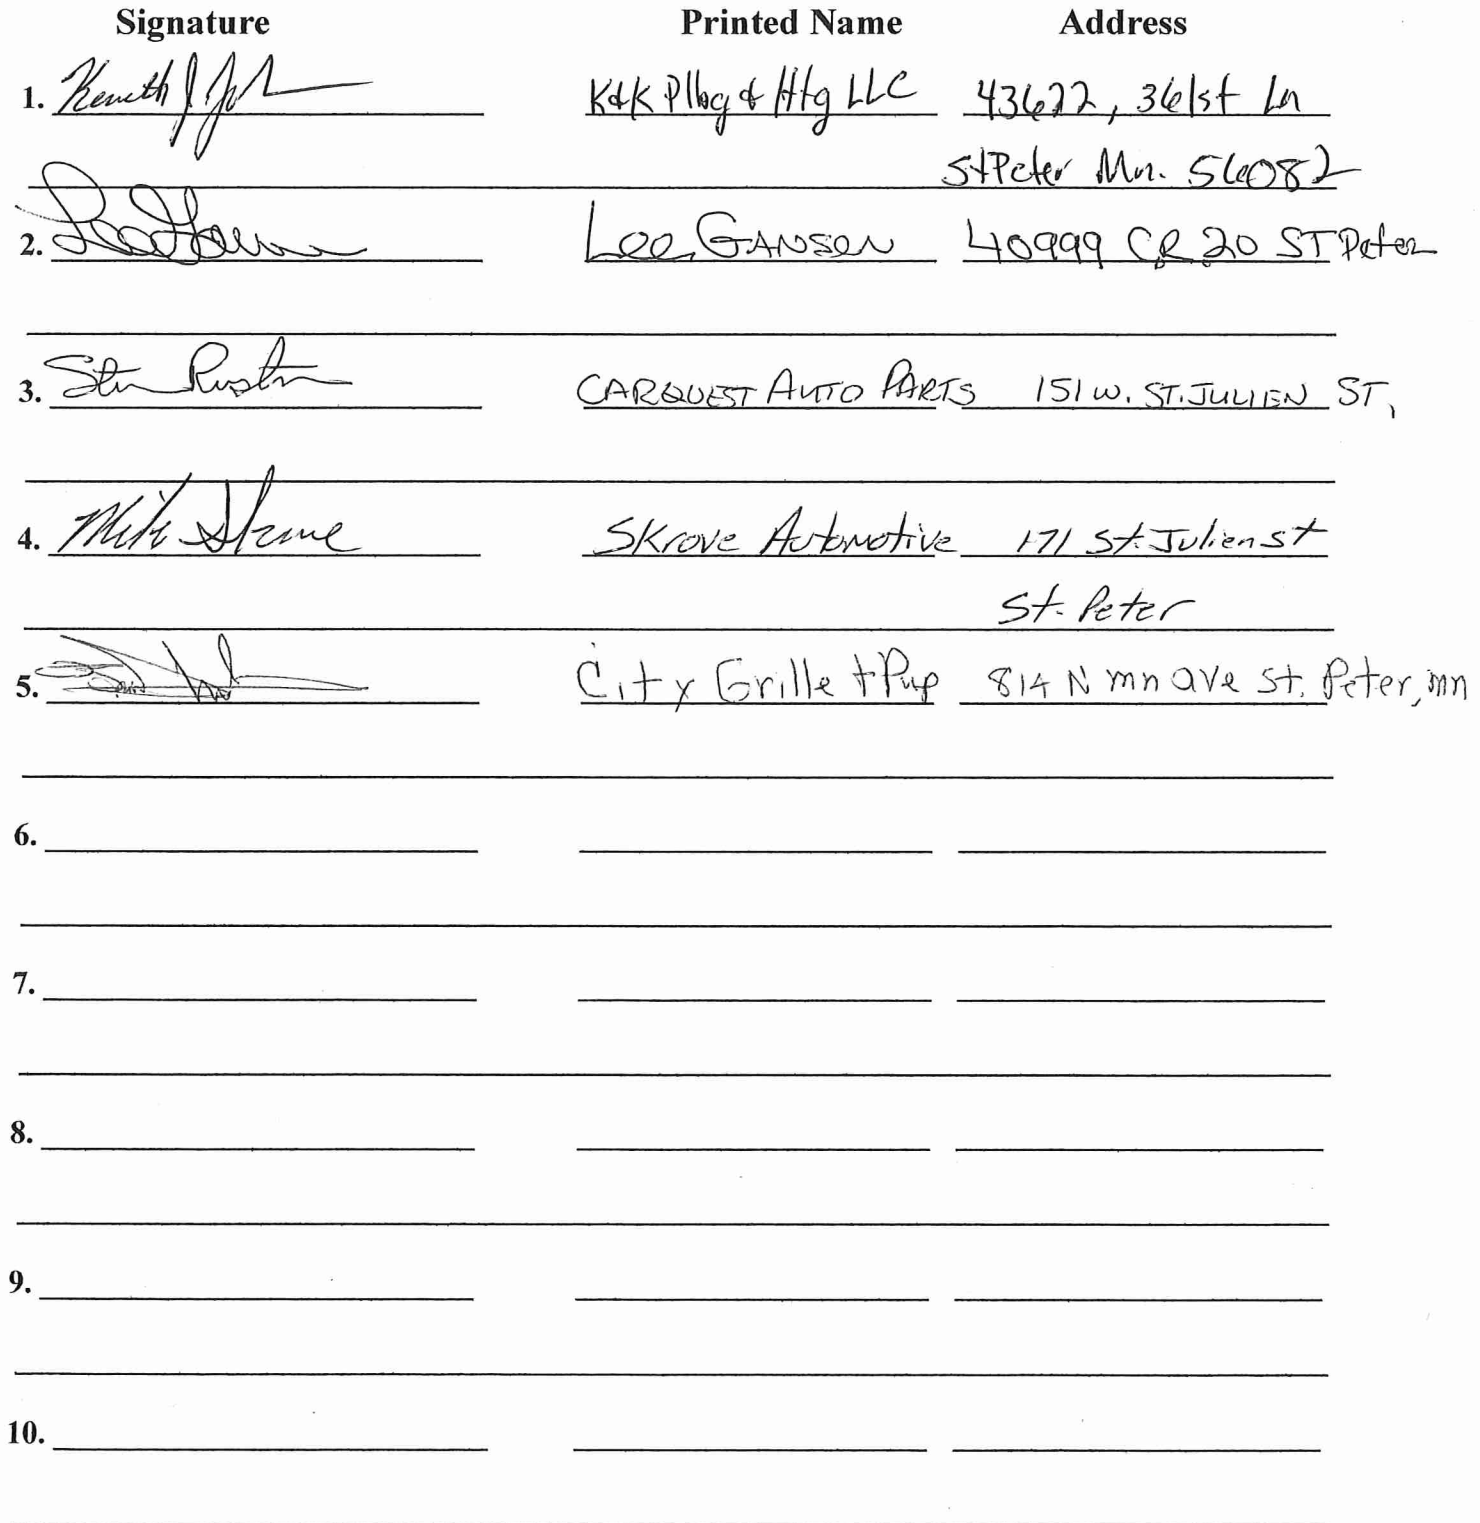 Signature Printed Name Address
1. Kenneth J K&K Plbg & Htg LLC 43622, 361st Ln
St Peter Mn. 56082
2. Lee GANSEN 40999 CR 20 ST Peter
3. CARQUEST AUTO PARTS 151 W. ST. JULIEN ST,
4. Mike Skrove Skrove Automotive 171 St. Julien st
St. Peter
5. City Grille + Pup 814 N mn ave st. Peter, mn
6.
7.
8.
9.
10.